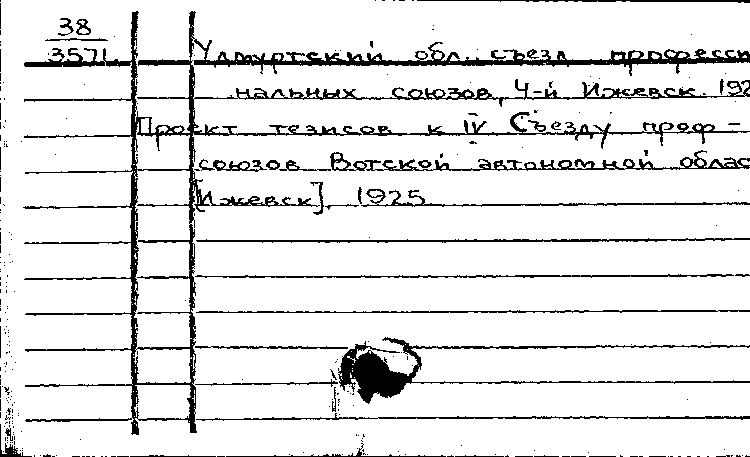 38
3571. Удмуртский обл. съезд професси
нальных союзов, 4-й Ижевск. 192
Проект тезисов к IV Съезду проф-
союзов Вотской автономной облас
[Ижевск]. 1925